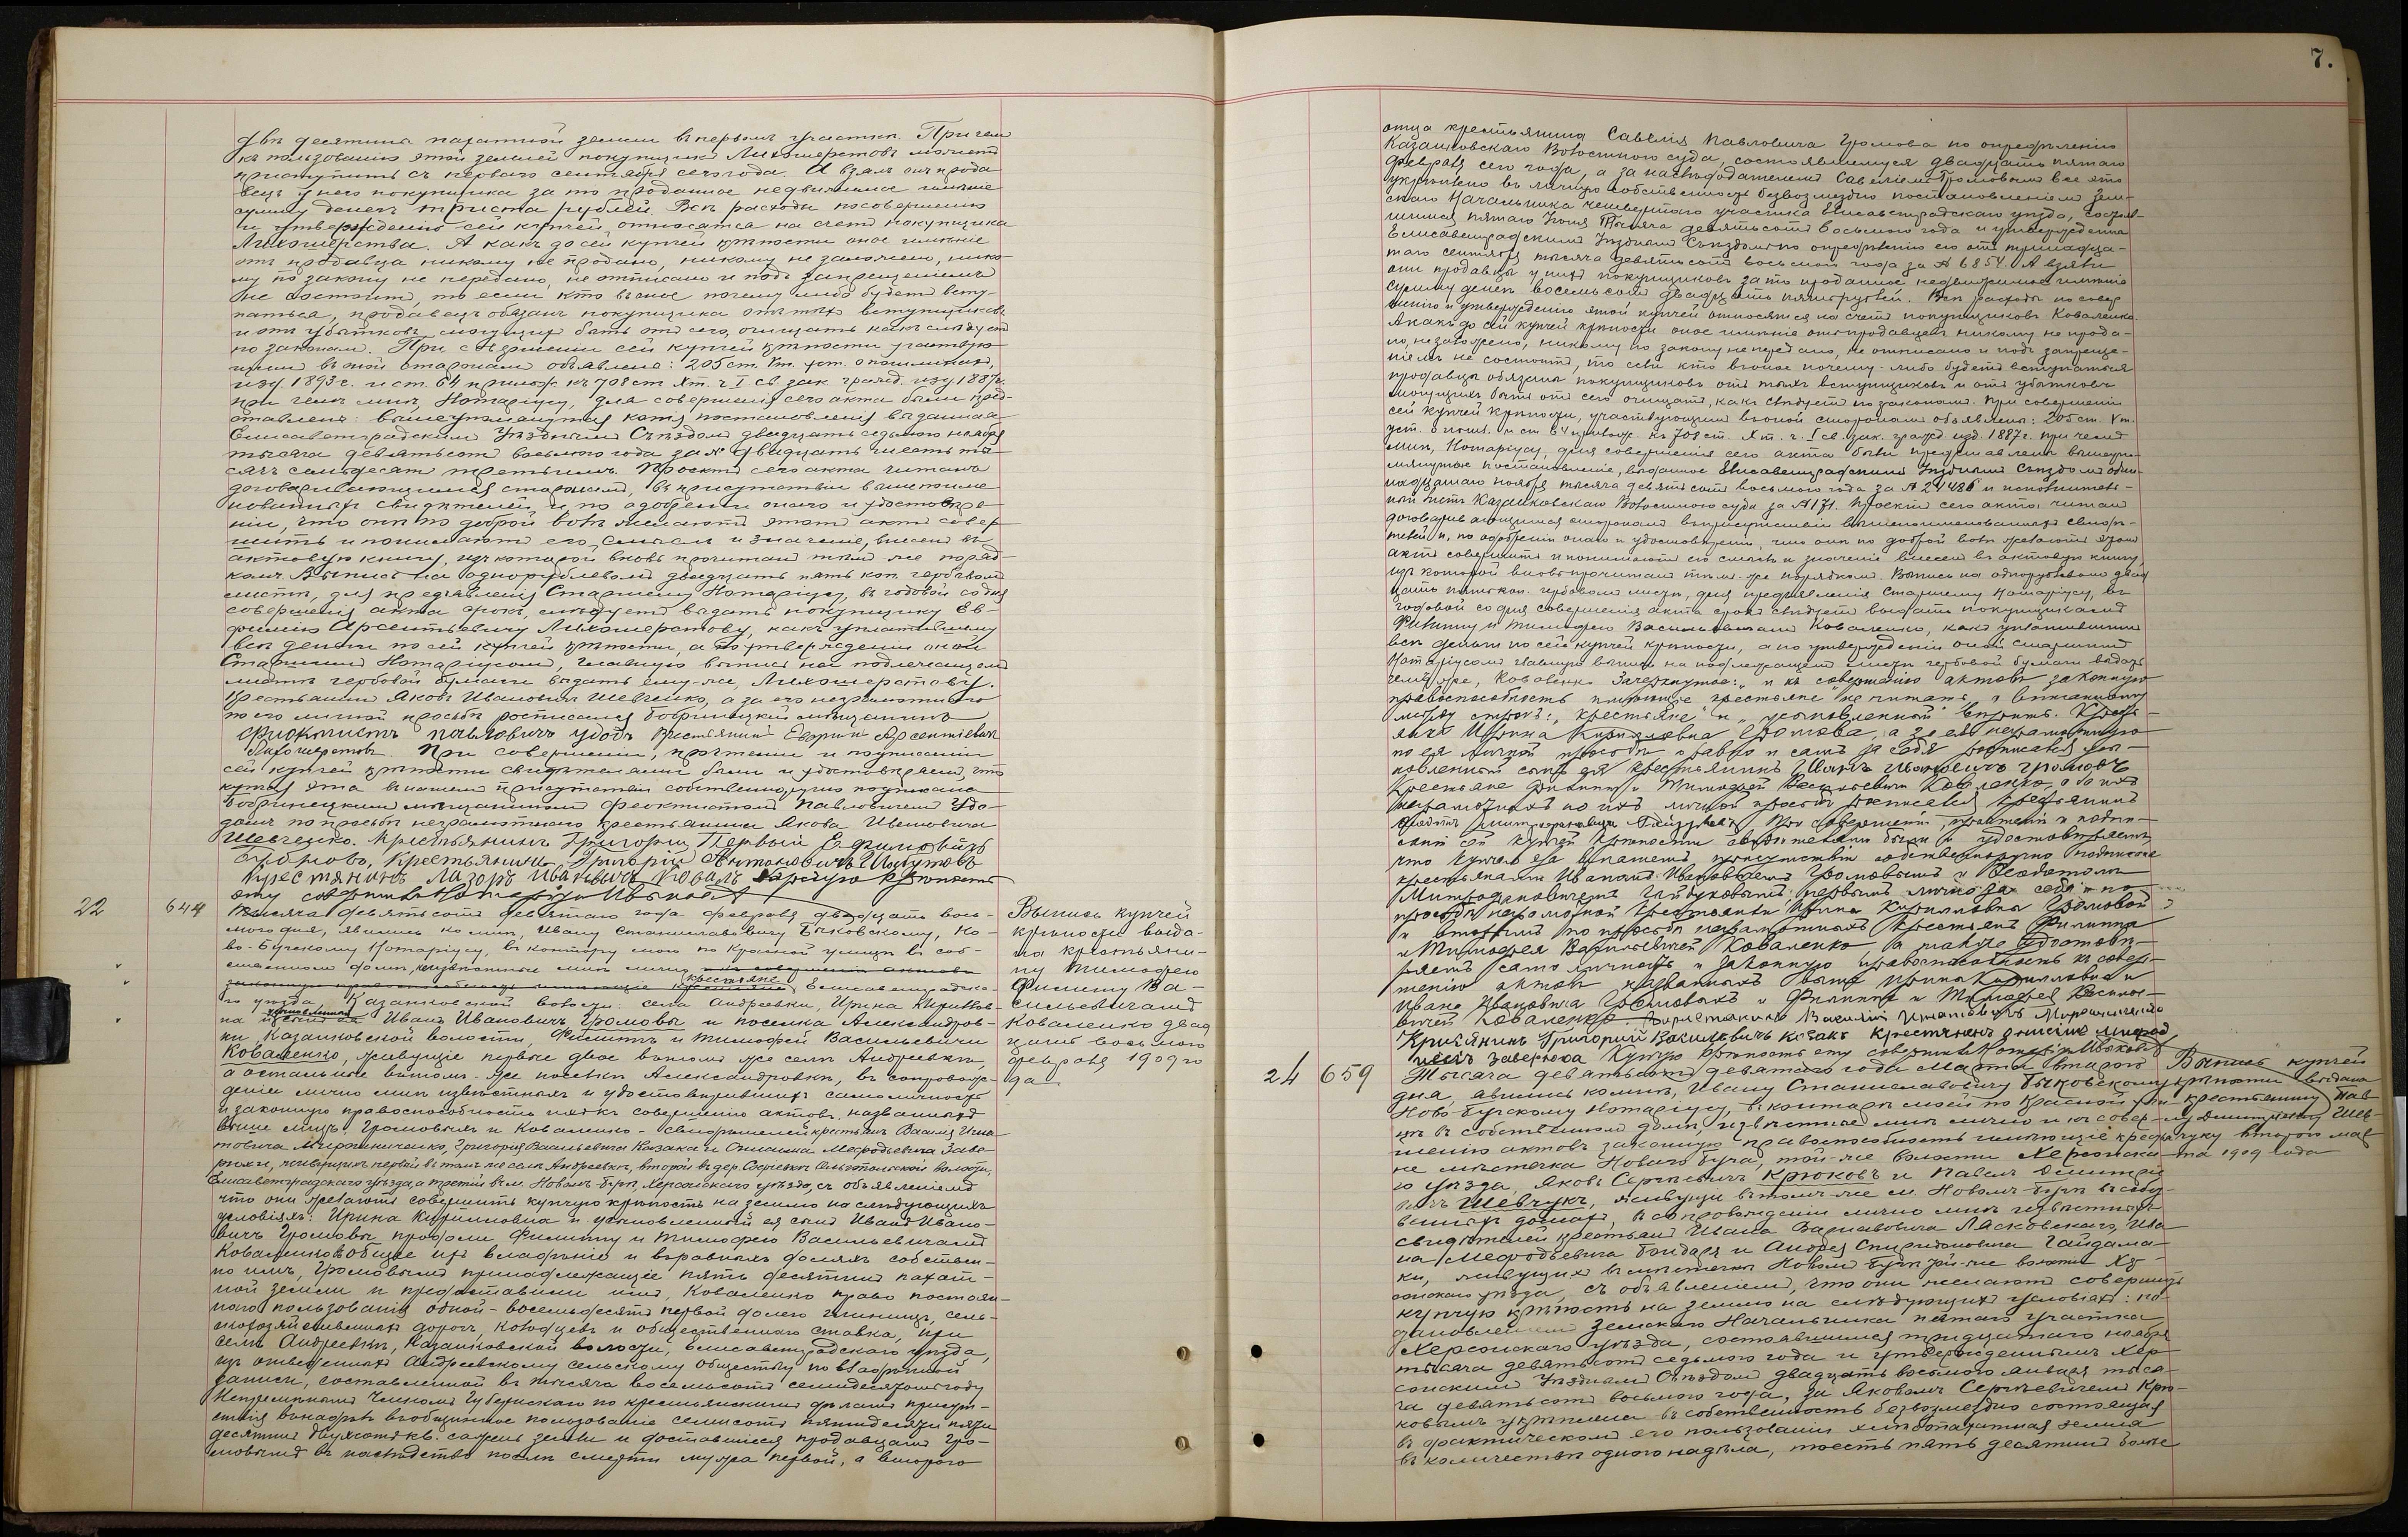 двѣ десятины пахатной земли въ первомъ участкѣ. Причемъ
къ пользованію этой землей покупщикъ Лихошерстовъ можетъ
приступить съ перваго сентября сего года. А взялъ онъ прода
вецъ у него покупщика за то проданное недвижимое имѣніе
сумму денегъ триста рублей. Всѣ расходы по совершенію
и утвержденію сей купчей, относятся на счетъ покупщика
Лихошерстова. А какъ до сей купчей крѣпости оное имѣніе
отъ продавца никому не продано, никому не заложено, нико-
му по закону не передано, не отписано и подъ запрещеніемъ
не состоитъ, то если кто въ оное почему либо будетъ всту-
паться, продавецъ обязанъ покупщика отъ тѣхъ вступщиковъ
и отъ убытковъ, могущихъ быть отъ сего, очищать какъ слѣдуетъ
по законамъ. При совершеніи сей купчей крѣпости участвую-
щимъ въ оной сторонамъ объявлены: 205 ст. Vт. уст. о пошлинахъ,
изд. 1893 г. и ст. 64 прилож. къ 708 ст. Xт. ч. I св. зак. гражд. изд. 1887 г.
при чемъ мнѣ, Нотаріусу, для совершенія сего акта были пред-
ставлены: вышеупомянутая копія постановленія выданная
Елисаветградскимъ Уѣзднымъ Съѣздомъ двадцать седьмого ноября
тысяча девятьсотъ восьмого года за № двадцать шесть ты-
сячъ семьдесятъ третьимъ. Проектъ сего акта читанъ
договаривающимся сторонамъ, въ присутствіи вышепоиме
нованныхъ свидѣтелей и, по одобреніи онаго и удостовѣре
ніи, что они по доброй волѣ желаютъ этотъ актъ совер
шить и понимаютъ его смыслъ и значеніе, внесенъ въ
актовую книгу, изъ которой вновь прочитанъ тѣмъ же поряд-
комъ. Выпись на однорублевомъ двадцать пять коп. гербовомъ
листѣ, для предъявленія Старшему Нотаріусу, въ годовой со дня
совершенія акта срокъ, слѣдуетъ выдать покупщику Ев-
фимію Арсентьевичу Лихошерстову, какъ уплатившему
всѣ деньги по сей купчей крѣпости, а по утвержденіи оной
Старшимъ Нотаріусомъ, главную выпись на подлежащемъ
листѣ гербовой бумаги выдать ему-же, Лихошерстову.
Крестьянинъ Яковъ Ивановичъ Шевченко, а за его неграмотного
по его личной просьбѣ росписался Бобринецкій мѣщанинъ
Феоктистъ Павловичъ Удодъ Крестьянинъ Евфимій Арсентіевъ
Лихошерстовъ. При совершеніи, прочтеніи и подписаніи
сей купчей крѣпости свидѣтелями были и удостовѣряемъ, что
купчая эта въ нашемъ присутствіи собственноручно подписана
Бобринецкимъ мѣщаниномъ Феоктистомъ Павловичемъ Удо-
домъ по просьбѣ неграмотнаго крестьянина Якова Ивановича
Шевченко. Крестьянинъ Григорій Первый Ефимовичъ
Крестьянинъ Григорій Антоновичъ
Крестянинъ Лазорь Ивановичъ Коваль Купчую крѣпость
эту совершилъ Нотаріусъ Быковскій
22 644 Тысяча девятьсотъ девятаго года февраля двадцать вось-
мого дня, явились ко мнѣ, Ивану Станиславовичу Быковскому, Но-
во-Бугскому Нотаріусу, въ контору мою по Красной улицѣ въ соб-
ственномъ домѣ, неизвѣстные мнѣ лично къ совершенію актовъ
законную правоспособность имѣющіе крестьяне крестьяне Елисаветградска-
го уѣзда, Казанковской волости: села Андреевки, Ирина Кирилов-
на усыновленный Иванъ Ивановичъ Громовы и поселка Александров-
ки, Казанковской волости, Филиппъ и Тимофей Васильевичи
Коваленко, живущіе первые двое въ томъ же селѣ Андреевкѣ,
а остальные въ томъ-же поселкѣ Александровкѣ, въ сопровож-
деніи лично мнѣ извѣстныхъ и удостовѣрившихъ самоличность
и законную правоспособность ихъ къ совершенію актовъ, названныхъ
выше лицъ Громовыхъ и Коваленко - свидѣтелей крестьянъ Василія Игна-
товича Мирошниченко, Григорія Васильевича Казака и Онисима Мефодьевича Заве-
рюхи, живущихъ первый въ томъ же селѣ Андреевкѣ, второй въ дер. Ольгопольской волости,
Елисаветградскаго уѣзда, а третій въ м. Новомъ-Бугѣ, Херсонскаго уѣзда, съ объявленіемъ
что они желаютъ совершить купчую крѣпость на землю на слѣдующихъ
условіяхъ: Ирина Кирилловна и усыновленный ея сынъ Иванъ Ивано-
вичъ Громовы продали Филиппу и Тимофею Васильевичамъ
Коваленко въ общее ихъ владѣніе и въ равныхъ доляхъ собствен-
но имъ, Громовымъ принадлежащіе пять десятинъ пахат-
ной земли и предоставили имъ, Коваленко право постоян-
наго пользованія одной-восемьдесятъ первой долею гумнищъ, сель-
скохозяйственныхъ дорогъ, колодцевъ и общественнаго ставка, при
селѣ Андреевкѣ, Казанковской волости, Елисаветградскаго уѣзда,
изъ отведенныхъ Андреевскому сельскому обществу по владѣнной
записи, составленной въ тысяча восемьсотъ семидесятомъ году
Непремѣннымъ Членомъ Губернскаго по крестьянскимъ дѣламъ присут-
ствія въ надѣлъ въ общинное пользованіе семисотъ пятидесяти пяти
десятинъ двухсотъ кв. саженъ земли и доставшіеся продавцамъ Гро-
мовымъ въ наслѣдство послѣ смерти мужа первой, а второго
Выпись купчей
крѣпости выда-
на крестьяни-
ну Тимофею
Филиппу Ва-
сильевичамъ
Коваленко двад
цать восьмого
февраля 1909 го
да
7.
отца крестьянина Савелія Павловича Громова по опредѣленію
Казанковскаго Волостного суда, состоявшемуся двадцать пятаго
февраля сего года, а за наслѣдодателемъ Савеліемъ Громовымъ все это
укрѣплено въ личную собственность безвозмездно постановленіемъ Зем-
скаго Начальника четвертаго участка Елисаветградскаго уѣзда, состояв-
шимся пятаго Іюня Тысяча девятьсотъ восьмого года и утвержденнымъ
Елисаветградскимъ Уѣзднымъ Съѣздомъ по опредѣленію его отъ тринадца-
таго сентября тысяча девятьсотъ восьмого года за № 6854. А взяли
они продавцы у нихъ покупщиковъ за то проданное недвижимое имѣніе
сумму денегъ восемьсотъ двадцать пять рублей. Всѣ расходы по совер
шенію и утвержденію этой купчей относятся на счетъ покупщиковъ Коваленко.
А какъ до сей купчей крѣпости оное имѣніе отъ продавцевъ никому не прода-
но, не заложено, никому по закону не передано, не отписано и подъ запреще-
ніемъ не состоитъ, то если кто въ оное почему-либо будетъ вступаться
продавцы обязаны покупщиковъ отъ тѣхъ вступщиковъ и отъ убытковъ
могущихъ быть отъ сего очищать, какъ слѣдуетъ по законамъ. При совершеніи
сей купчей крѣпости, участвующимъ въ оной сторонамъ объявлены: 205 ст. Vт.
уст. о пошл. и ст 64 прилож. къ 708 ст. Xт. ч. I св. зак. гражд. изд. 1887 г. при чемъ
мнѣ, Нотаріусу, для совершенія сего акта были представлены вышеупо-
мянутое постановленіе, выданное Елисаветградскимъ Уѣзднымъ Съѣздомъ один-
надцатаго ноября тысяча девятьсотъ восьмого года за № 24486 и исполнитель-
ный листъ Казанковскаго Волостного суда за № 171. Проектъ сего акта читанъ
договаривающимся сторонамъ въ присутствіи вышепоименованныхъ свидѣ-
телей и, по одобреніи онаго и удостовѣреніи, что они по доброй волѣ желаютъ этотъ
актъ совершить и понимаютъ его смыслъ и значеніе внесенъ въ актовую книгу
изъ которой вновь прочитанъ тѣмъ-же порядкомъ. Выпись на однорублевомъ двад
цать пять коп. гербовомъ листѣ, для предъявленія Старшему Нотаріусу, въ
годовой со дня совершенія акта срокъ слѣдуетъ выдать покупщикамъ
Филиппу и Тимофею Васильевичамъ Коваленко, какъ уплатившимъ
всѣ деньги по сей купчей крѣпости, а по утвержденіи оной Старшимъ
Нотаріусомъ главную выпись на подлежащемъ листѣ гербовой бумаги выдать
имъ-же, Коваленко. Зачеркнутое: „и къ совершенію актовъ законную
правоспособность имѣющіе крестьяне" не читать, а вписанному
между строкъ: „крестьяне" и „усыновленный" вѣрить. Кресть-
янка Ирина Кирилловна Громова, а за ея неграмотную
по ея личной просьбѣ, а равно и самъ за себя росписался усы-
новленный сынъ ея Крестьянинъ Иванъ Ивановичъ Громовъ
Крестьяне Филиппъ и Тимофей Васильевичи Коваленко, а за ихъ
неграмотныхъ по ихъ личной просьбѣ росписался Крестьянинъ
Феодотъ Митрофановичъ Гайдукъ При совершеніи, прочтеніи и подпи-
саніи сей купчей крѣпости свидѣтелями были и удостовѣряемъ,
что купчая эта въ нашемъ присутствіи собственноручно подписана
крестьянами Иваномъ Ивановичемъ Громовымъ и Феодотомъ
Митрофановичемъ Гайдуковымъ: первымъ лично за себя и по
просьбѣ неграмотной крестьянки Ирины Кирилловны Громовой
и вторымъ по просьбѣ неграмотныхъ крестьянъ Филиппа
и Тимофея Васильевичей Коваленко а также удостовѣ-
ряемъ самоличность и законную правоспособность къ совер-
шенію актовъ названныхъ выше Ирины Кирилловны и
Ивана Ивановича Громовыхъ и Филиппа и Тимофея Василье-
вичей Коваленко. Крестьянинъ Василій Игнатовичъ Мирошниченко
Крисянинъ Григорій Васильевичъ Козакъ Крестянен онисимъ
Заверюха Купчую крѣпость эту совершилъ Нотаріусъ Быковскій
24 659 Тысяча девятьсотъ девятаго года Марта второго
дня, явились ко мнѣ, Ивану Станиславовичу Быковскому
Ново-Бугскому Нотаріусу, въ контору мою по Красной ули-
цѣ въ собственномъ домѣ, извѣстные мнѣ лично и къ совер-
шенію актовъ законную правоспособность имѣющіе крестья
не мѣстечка Новаго Буга, той-же волости Херсонска-
го уѣзда, Яковъ Сергѣевичъ Крюковъ и Павелъ Дмитріе
вичъ Шевчукъ, живущіе въ томъ-же м. Новомъ-Бугѣ въ соб-
ственныхъ домахъ, въ сопровожденіи лично мнѣ извѣстныхъ
свидѣтелей крестьянъ Ивана Варлавовича Лясковскаго, Ива
на Мефодьевича Бондаря и Андрея Спиридоновича Гайдама-
ки, живущихъ въ мѣстечкѣ Новомъ Бугѣ той-же волости Хер-
сонскаго уѣзда, съ объявленіемъ, что они желаютъ совершить
купчую крѣпость на землю на слѣдующихъ условіяхъ: по-
становленіемъ Земскаго Начальника пятаго участка
Херсонскаго уѣзда, состоявшимся тридцатаго ноября
тысяча девятьсотъ седьмого года и утвержденнымъ Хер-
сонскимъ Уѣзднымъ Съѣздомъ двадцать восьмого января тыся-
ча девятьсотъ восьмого года, за Яковомъ Сергѣевичемъ Крю-
ковымъ укрѣплена въ собственность безвозмездно состоящая
въ фактическомъ его пользованіи хлѣбопахатная земля
въ количествѣ одного надѣла, тоесть пять десятинъ болѣе
Выпись купчей
крѣпости выдана
крестьянину Пав
лу Дмитріевичу Шев-
чуку второго мар
та 1909 года